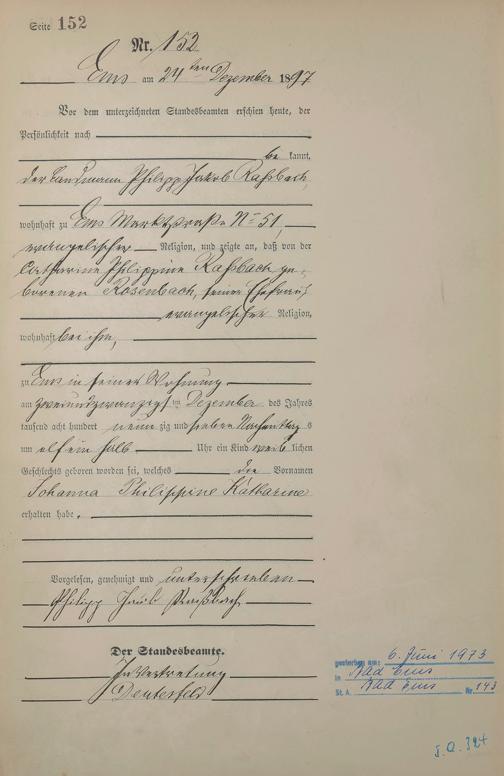 Seite 152
Nr. 152
Ems am 24ten Dezember 1897
Vor dem unterzeichneten Standesbeamten erschien heute, der
Persönlichkeit nach
be kannt,
der Landmann Philipp Jakob Raßbach,
wohnhaft zu Ems Marktstraße No 51,
evangelischer Religion, und zeigte an, daß von der
Catharine Philippine Raßbach ge-
borenen Rosenbach, seiner Ehefrau,
evangelischer Religion,
wohnhaft bei ihm,
zu Ems in seiner Wohnung
am zweiundzwanzigsten Dezember des Jahres
tausend acht hundert neun zig und sieben Nachmittags
um elf ein halb Uhr ein Kind weib lichen
Geschlechts geboren worden sei, welches die Vornamen
Johanna Philippine Katharine
erhalten habe.
Vorgelesen, genehmigt und unterschrieben
Philipp Jacob Raßbach
Der Standesbeamte.
In Vertretung
gestorben am: 6. Juni 1973
in Bad Ems
St. A. Bad Ems Nr. 143